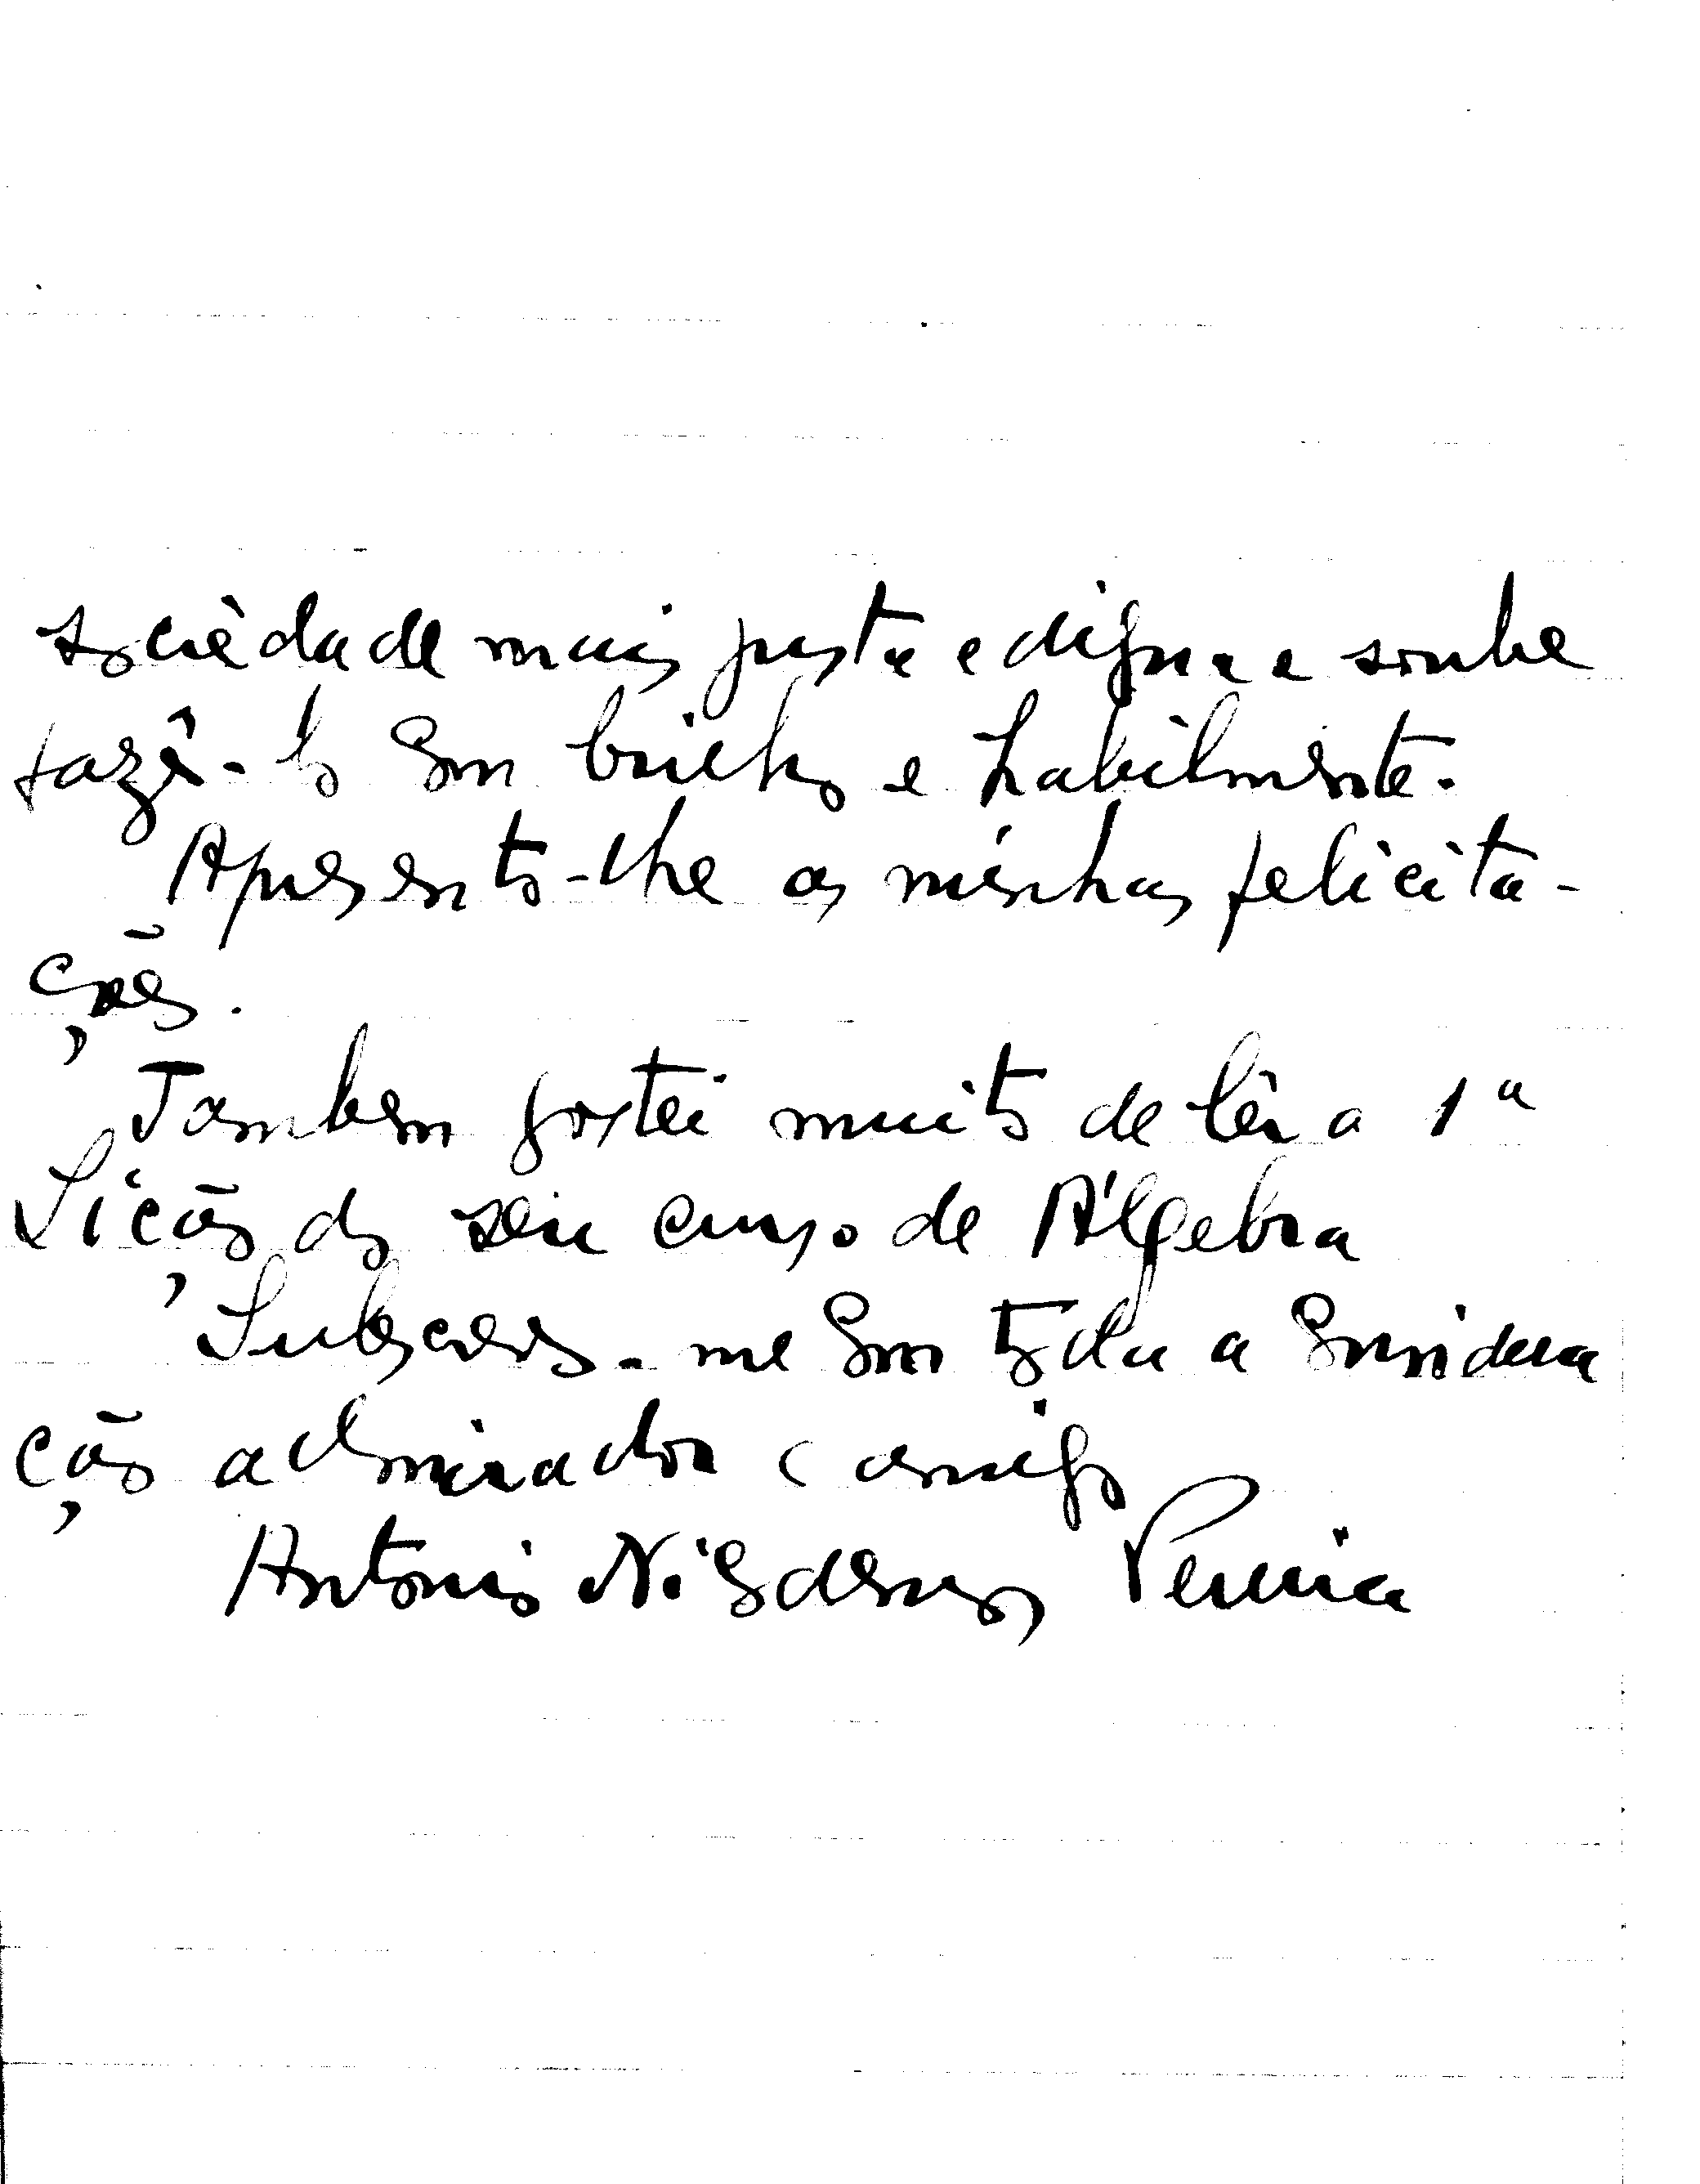 sociedade mais justa e digna e soube
fazê-lo com brilho e habilmente.
Apresento-lhe as minhas felicita-
ções.
Tambem gostei muito de lêr a 1ª
Lição do seu curso de Álgebra
Subscrevo-me com toda a considera
ção admirador e amigo
Antonio N. Pereira